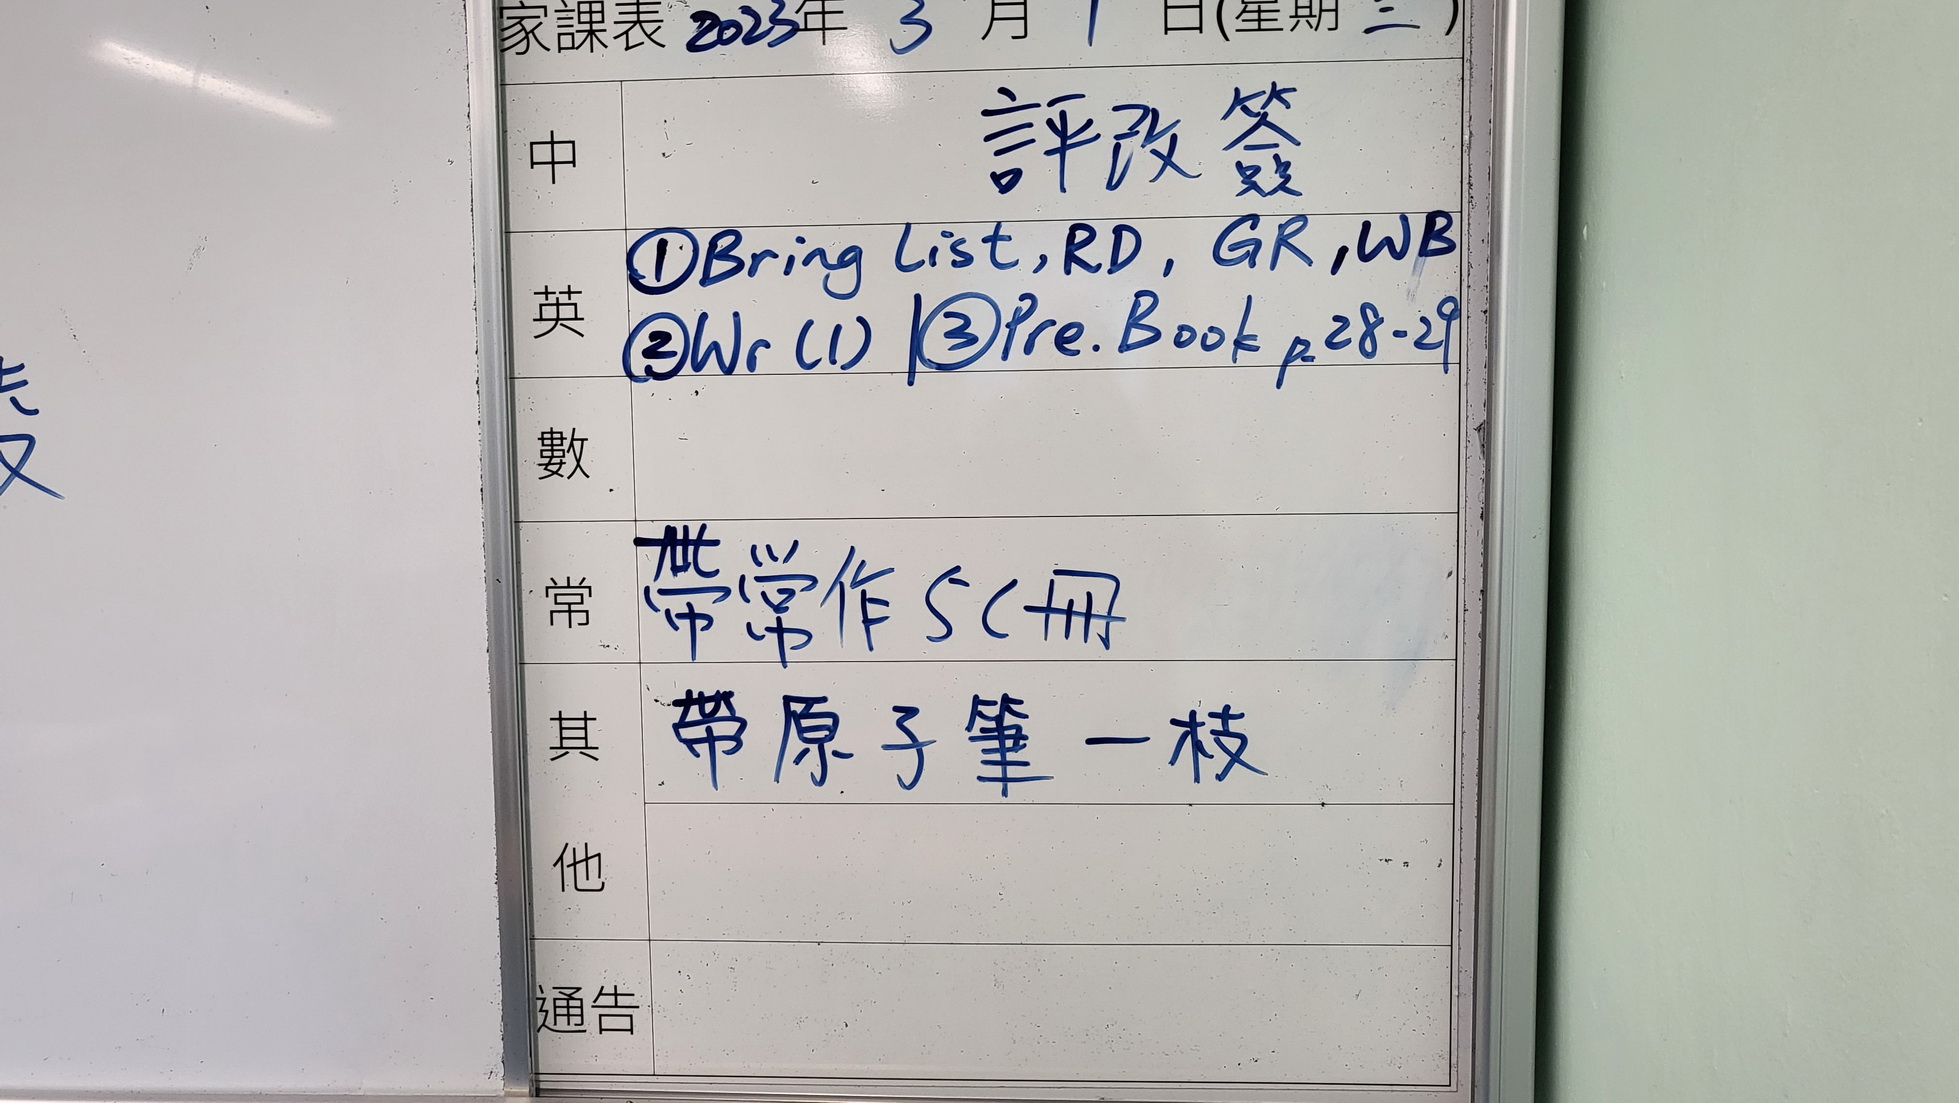 家課表 2023年 3 月 1 日(星期 三 )
中 評改簽
英 ①Bring List, RD, GR, WB
②Wr (1) | ③Pre. Book p.28-29
數
常 帶常作5C冊
其 帶原子筆一枝
他
通告